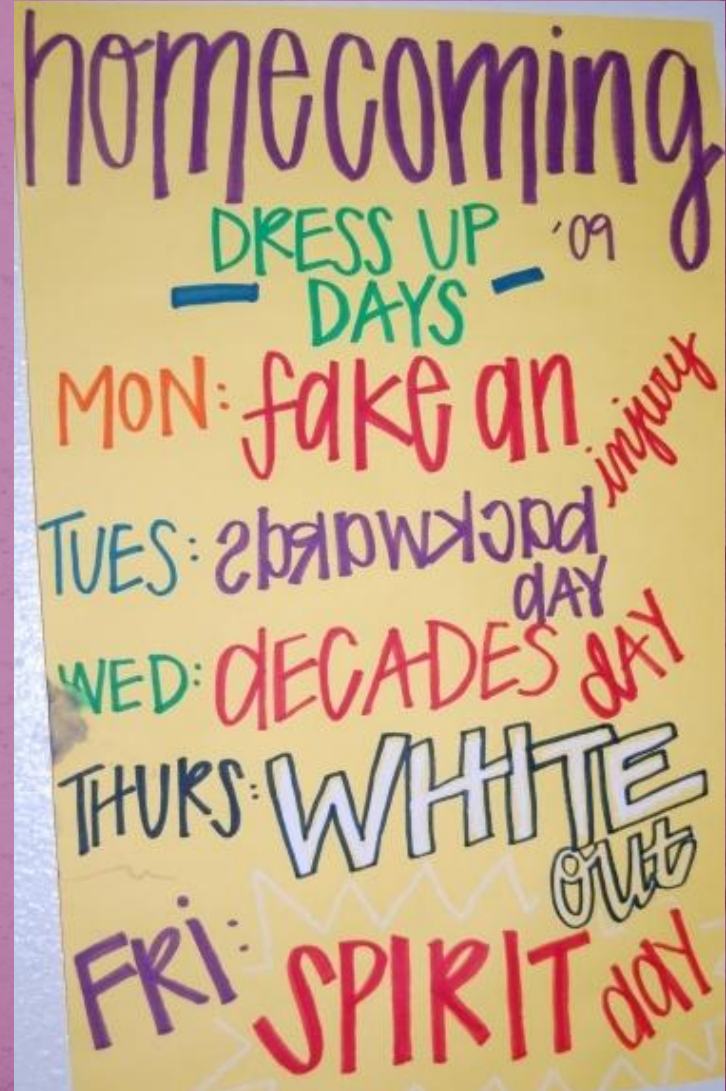 homecoming
DRESS UP '09
DAYS
MON: fake an injury
TUES: backwards
day
WED: DECADES DAY
THURS: WHITE
out
FRI: SPIRIT day